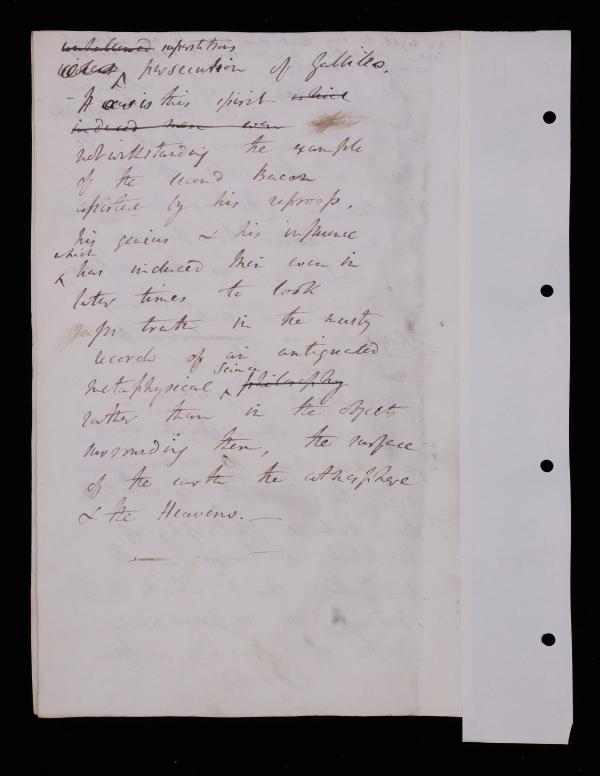 unhallowed superstitious
persecution of Gallileo.
- It was is this spirit which
induced men even
notwithstanding the example
of the second Bacon
assisted by his reproofs,
his genius & his influence
which
has induced Men even in
later times to look
for truth in the musty
records of an antiquated
Science
metaphysical philosophy
rather than in the objects
surrounding them, the surface
of the earth the atmosphere
& the Heavens. —